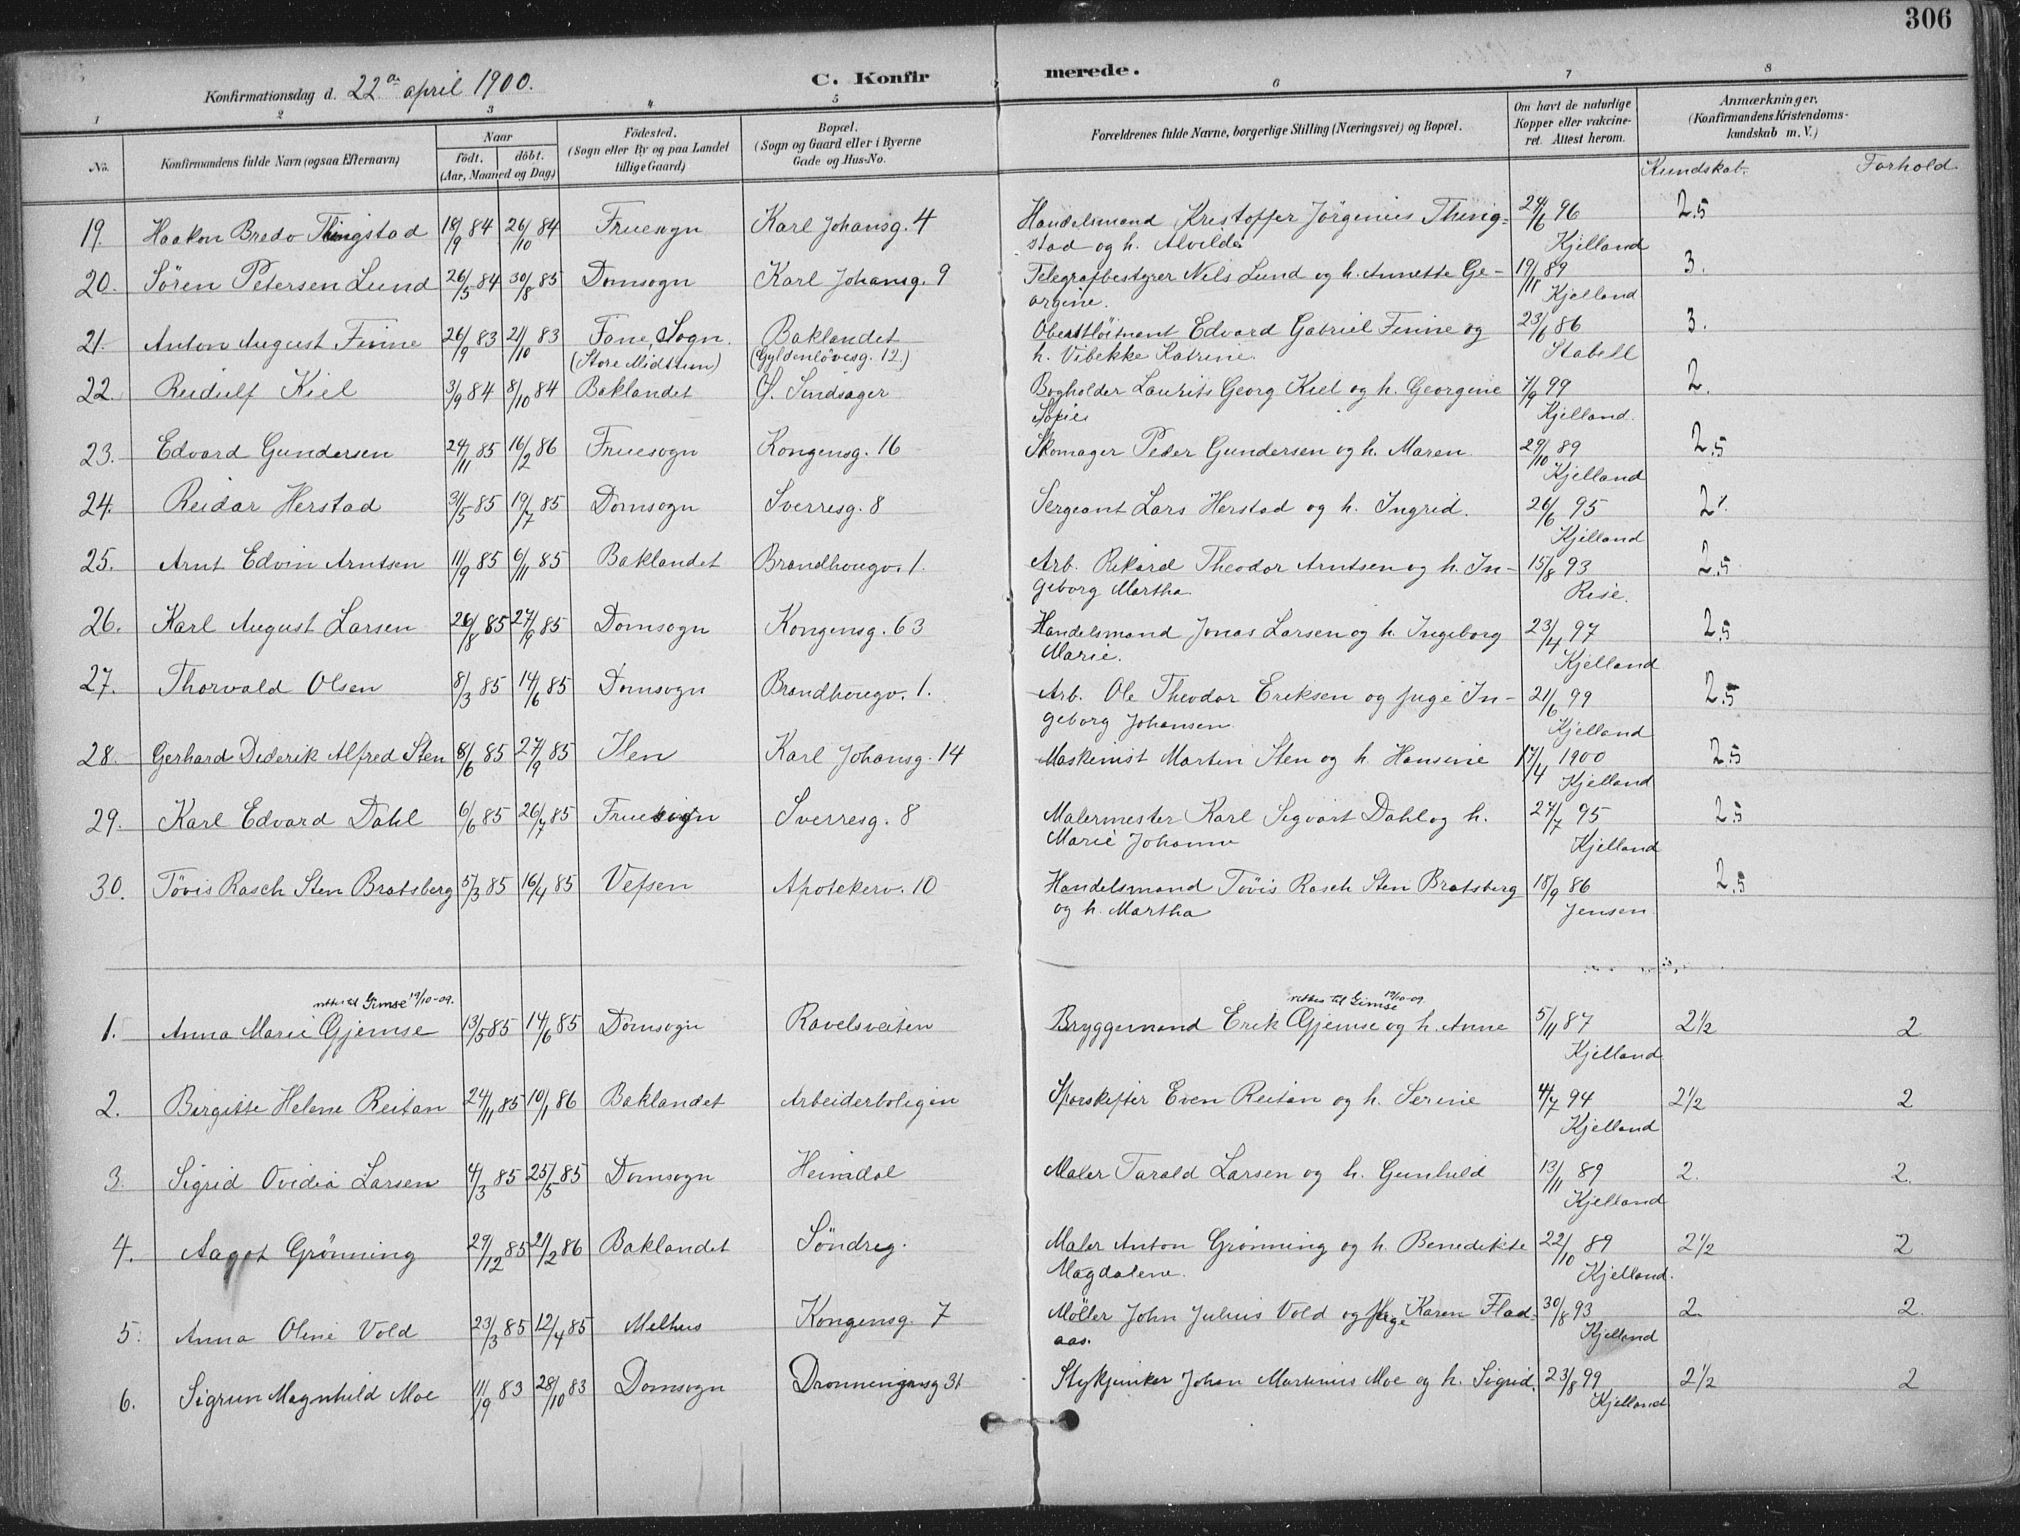 306
Konfirmationsdag d. 22de april 1900. C. Konfirmerede.
1 2 3 4 5 6 7 8
No. Konfirmandens fulde Navn (ogsaa Efternavn) Naar født. døbt. (Aar, Maaned og Dag) Fødested. (Sogn eller By og paa Landet tillige Gaard) Bopæl. (Sogn og Gaard eller i Byerne Gade og Hus-No. Forældrenes fulde Navne, borgerlige Stilling (Næringsvei) og Bopæl. Om havt de naturlige Kopper eller vakcineret. Attest herom. Anmærkninger. (Konfirmandens Kristendomskundskab m. V.)
Kundskab. Forhold.
19. Haakon Bredo Thingstad 18/9 84 26/10 84 Fruesogn Karl Johansg. 4 Handelsmand Kristoffer Jörgenius Thing- 24/6 96 2.5
stad og h. Alvilde Kjelland
20. Sören Petersen Lund 26/5 84 30/8 85 Domsogn Karl Johansg. 9 Telegrafbestyrer Nils Lund og h. Annette Ge- 19/11 89 3.
orgine. Kjelland
21. Anton August Finne 26/9 83 21/10 83 Fane Sogn. Baklandet Oberstlöitnant Edvard Gabriel Finne og 23/6 86 3.
(Store Midttun) (Gyldenlövesg. 12.) h. Vibekke Katrine. Stabell
22. Reidulf Kiel 3/9 84 8/10 84 Baklandet Ø. Sindsager Bogholder Laurits Georg Kiel og h. Georgine 7/9 99 2.
Sofie Kjelland.
23. Edvard Gundersen 24/11 85 16/2 86 Fruesogn Kongensg. 16 Skomager Peder Gundersen og h. Maren 29/10 89 2.5
Kjelland
24. Reidar Herstad 31/5 85 19/7 85 Domsogn Sverresg. 8 Sergeant Lars Herstad og h. Ingrid. 26/6 95 2.
Kjelland
25. Arnt Edvin Arntsen 11/9 85 6/11 85 Baklandet Brandhougv. 1. Arb. Rikard Theodor Arntsen og h. In- 15/8 93 2.5
geborg Martha Rise.
26. Karl August Larsen 26/8 85 27/9 85 Domsogn Kongensg. 63 Handelsmand Jonas Larsen og h. Ingeborg 23/4 97 2.5
Marie. Kjelland
27. Thorvald Olsen 8/3 85 14/6 85 Domsogn Brandhougv. 1. Arb. Ole Theodor Eriksen og pige In- 21/6 99 2.5
geborg Johansen Kjelland
28. Gerhard Diderik Alfred Sten 8/6 85 27/9 85 Ilen Karl Johansg. 14 Maskinist Martin Sten og h. Hansine 17/4 1900 2.5
Kjelland
29. Karl Edvard Dahl 6/6 85 26/7 85 Fruesogn Sverresg. 8 Malermester Karl Sigvart Dahl og h. 27/7 95 2.5
Marie Johanne Kjelland
30. Tövis Rasch Sten Bratsberg 5/3 85 16/4 85 Vefsen Apotekerv. 10 Handelsmand Tövis Rasch Sten Bratsberg 18/9 86 2.5
og h. Martha Jensen
rettes til Gimse 19/10-09. rettes til Gimse 19/10-09.
1. Anna Marie Gjemse 13/5 85 14/6 85 Domsogn Ravelsveiten Bryggemand Erik Gjemse og h. Anne 5/11 87 2½ 2
Kjelland
2. Birgitte Helene Reitan 24/11 85 10/1 86 Baklandet Arbeiderboligen Sporskifter Even Reitan og h. Serine 4/7 94 2½ 2
Kjelland
3. Sigrid Ovidia Larsen 4/3 85 25/5 85 Domsogn Heimdal Maler Tarald Larsen og h. Gunhild 13/11 89 2. 2.
Kjelland
4. Aagot Grönning 29/12 85 21/2 86 Baklandet Söndreg. Maler Anton Grönning og h. Benedikte 22/10 89 2½ 2
Magdalene. Kjelland.
5. Anna Oline Vold 23/3 85 12/4 85 Melhus Kongensg. 7 Møller John Julius Vold og pige Karen Flad- 30/8 93 2 2.
aas. Kjelland
6. Sigrun Magnhild Moe 11/9 83 28/10 83 Domsogn Dronningensg 31 Stykjunker Johan Martinius Moe og h. Sigrid. 23/8 99 2½ 2
Kjelland